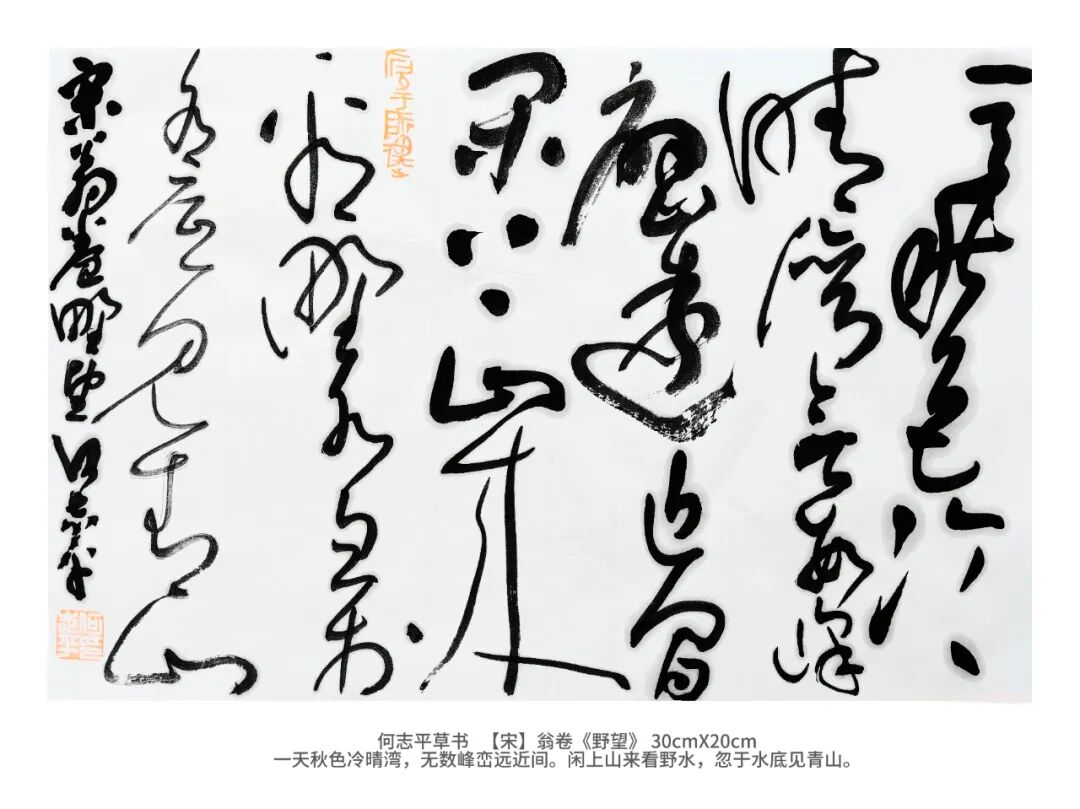 一天秋色冷
晴灣無數峰
巒遠近間
閑上山來
看野水忽於
水底見青山
宋翁卷野望 何志平
何志平
何志平草书 【宋】翁卷《野望》 30cmX20cm
一天秋色冷晴湾，无数峰峦远近间。闲上山来看野水，忽于水底见青山。